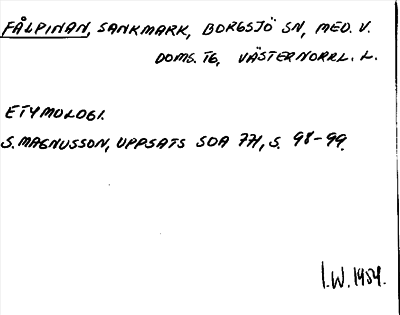 FÅLPINAN, SANKMARK, BORGSJÖ SN, MED. V.
DOMS. TG, VÄSTERNORRL. L.
ETYMOLOGI.
S. MAGNUSSON, UPPSATS SOA 771, S. 98-99.
I.W. 1954.